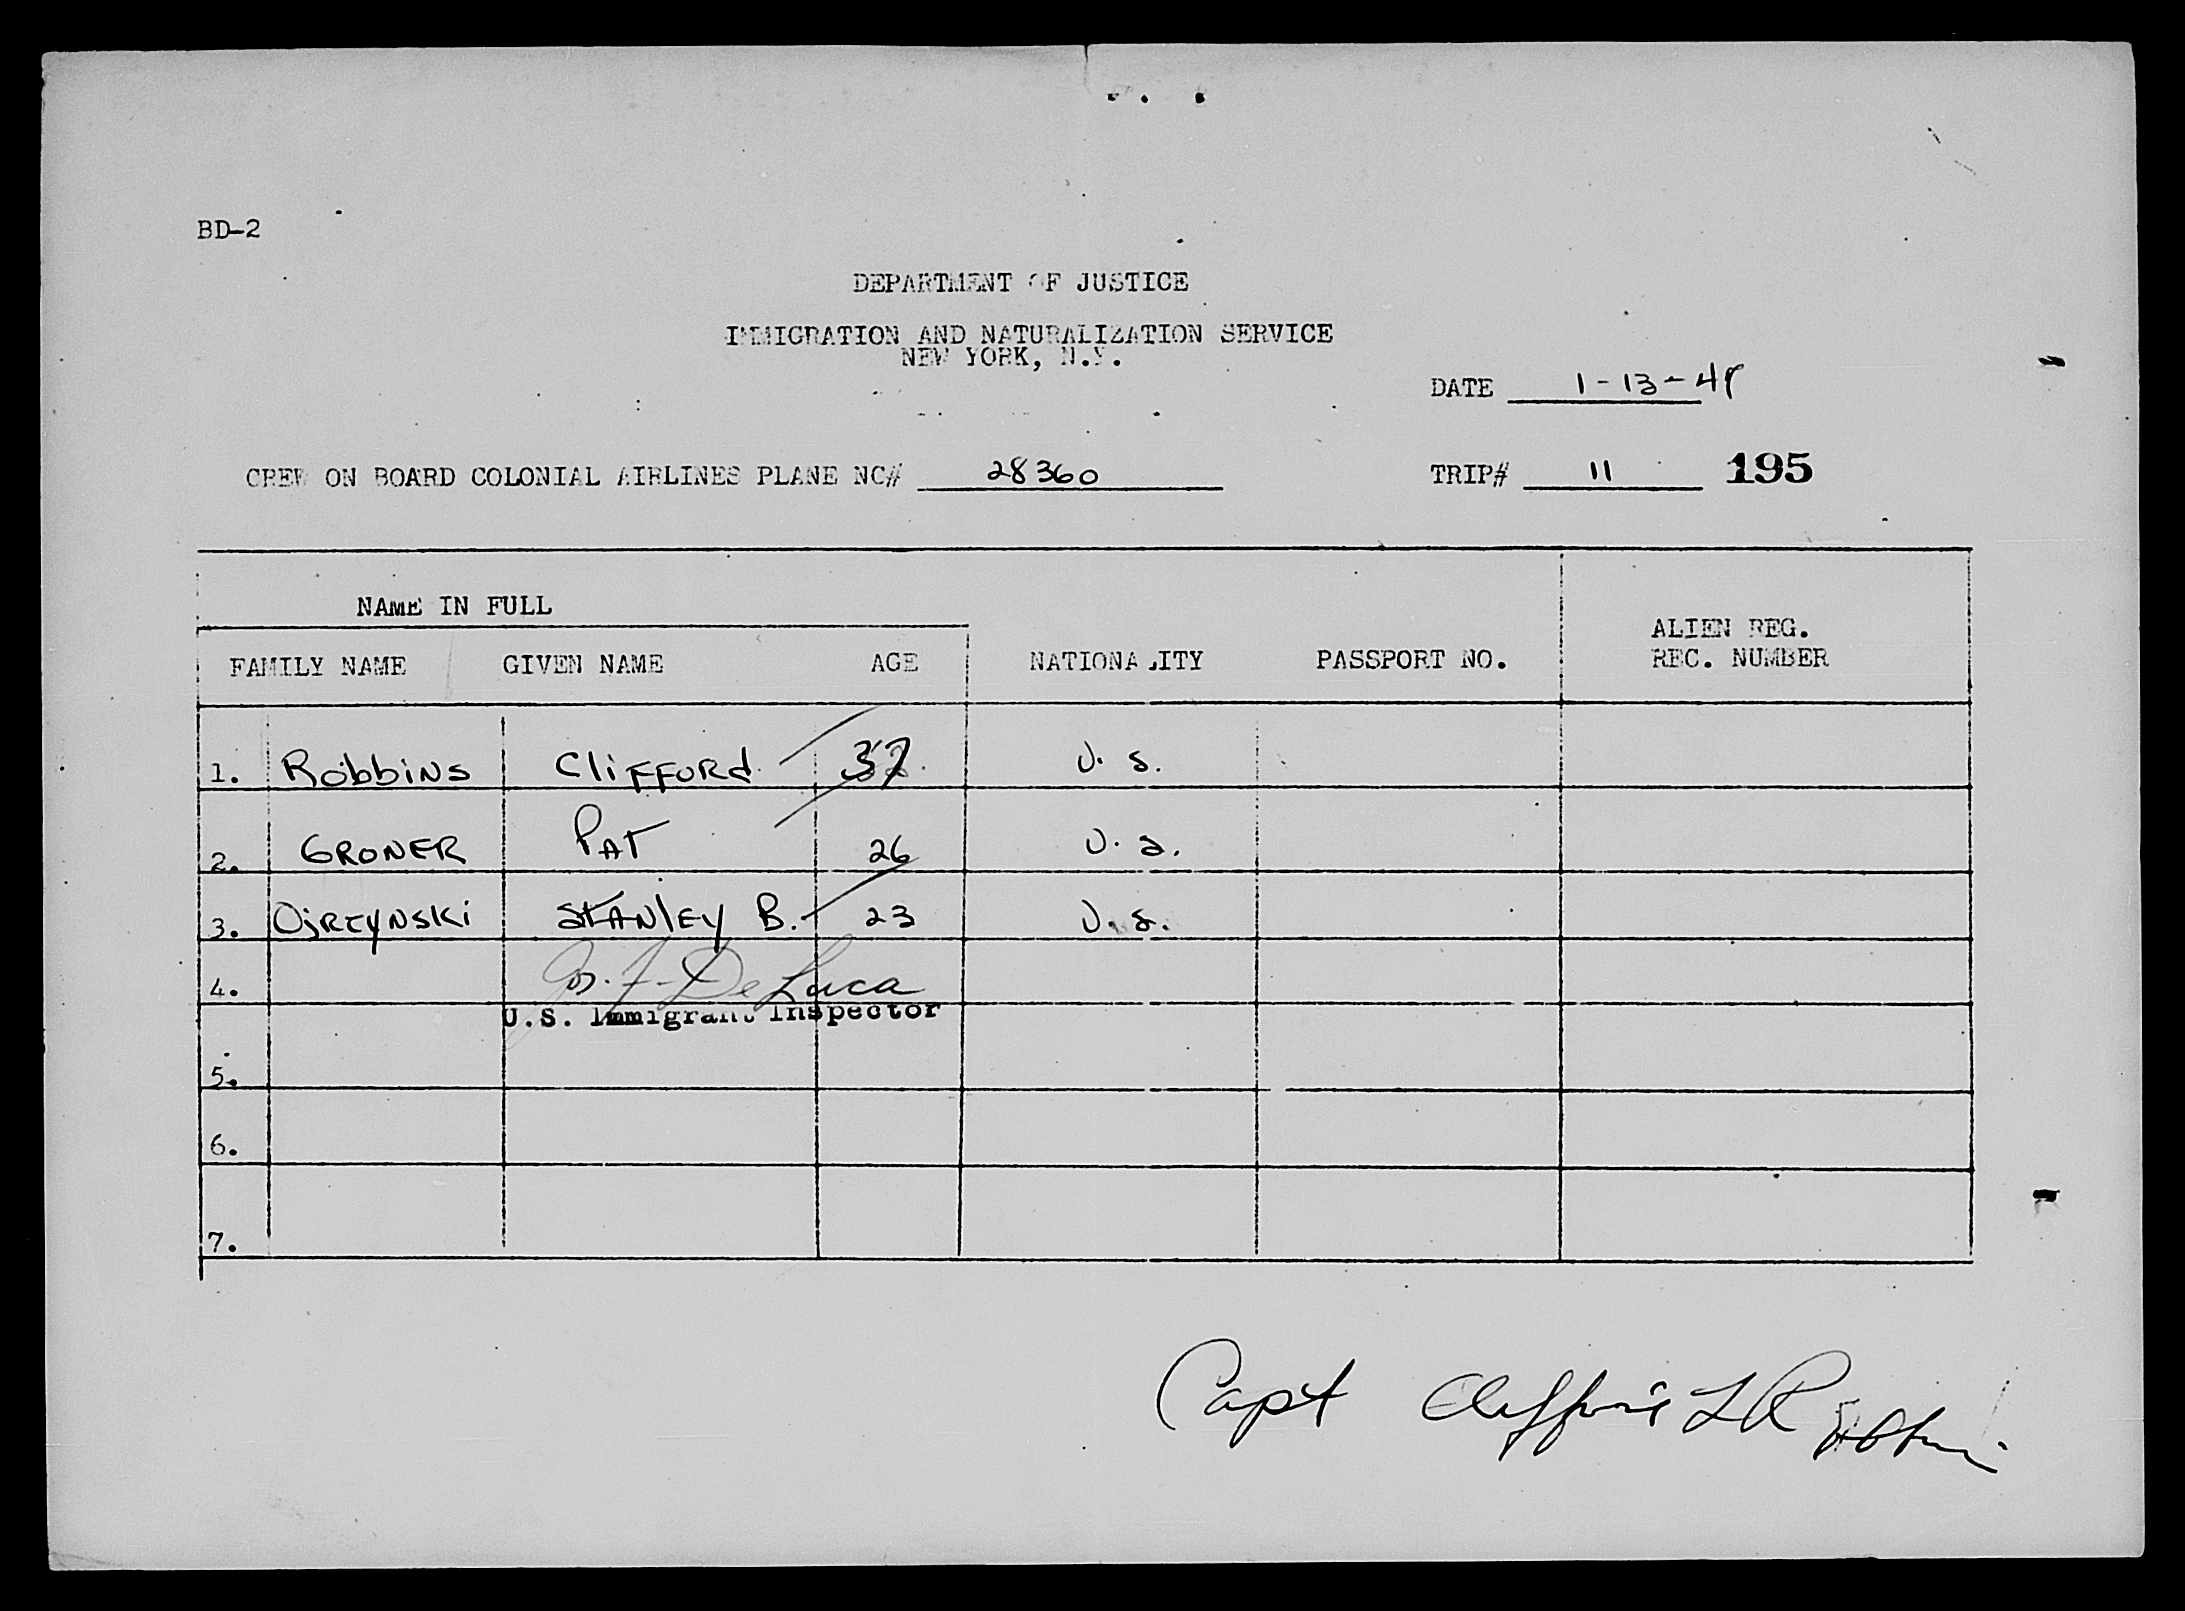 BD-2
DEPARTMENT OF JUSTICE
IMMIGRATION AND NATURALIZATION SERVICE
NEW YORK, N.Y.
DATE 1-13-48
CREW ON BOARD COLONIAL AIRLINES PLANE NC# 28360 TRIP# 11 195
NAME IN FULL
FAMILY NAME GIVEN NAME AGE NATIONALITY PASSPORT NO. ALIEN REG. REC. NUMBER
1. Robbins Clifford 37 U. S.
2. GRONER PAT 26 U. S.
3. OjRzyNski STANlEy B. 23 U. S.
4. Jos. F. De Luca
U.S. Immigrant Inspector
5.
6.
7.
Capt Clifford L Robbins